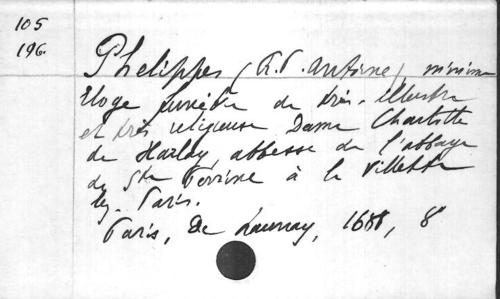 105
196.
Phelippes (R.P. Antoine), minime
Eloge funèbre de très-illustre
et très religieuse Dame Charlotte
de Harlay, abbesse de l'abbaye
de Ste Perrine à la Villette
lez-Paris.
Paris, De Launay, 1688, 8°